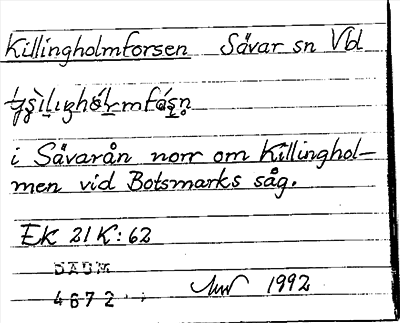 Killingholmforsen Sävar sn Vbl
i Sävarån norr om Killinghol-
men vid Botsmarks såg.
EK 21 K:62
DAUM
4672
1992